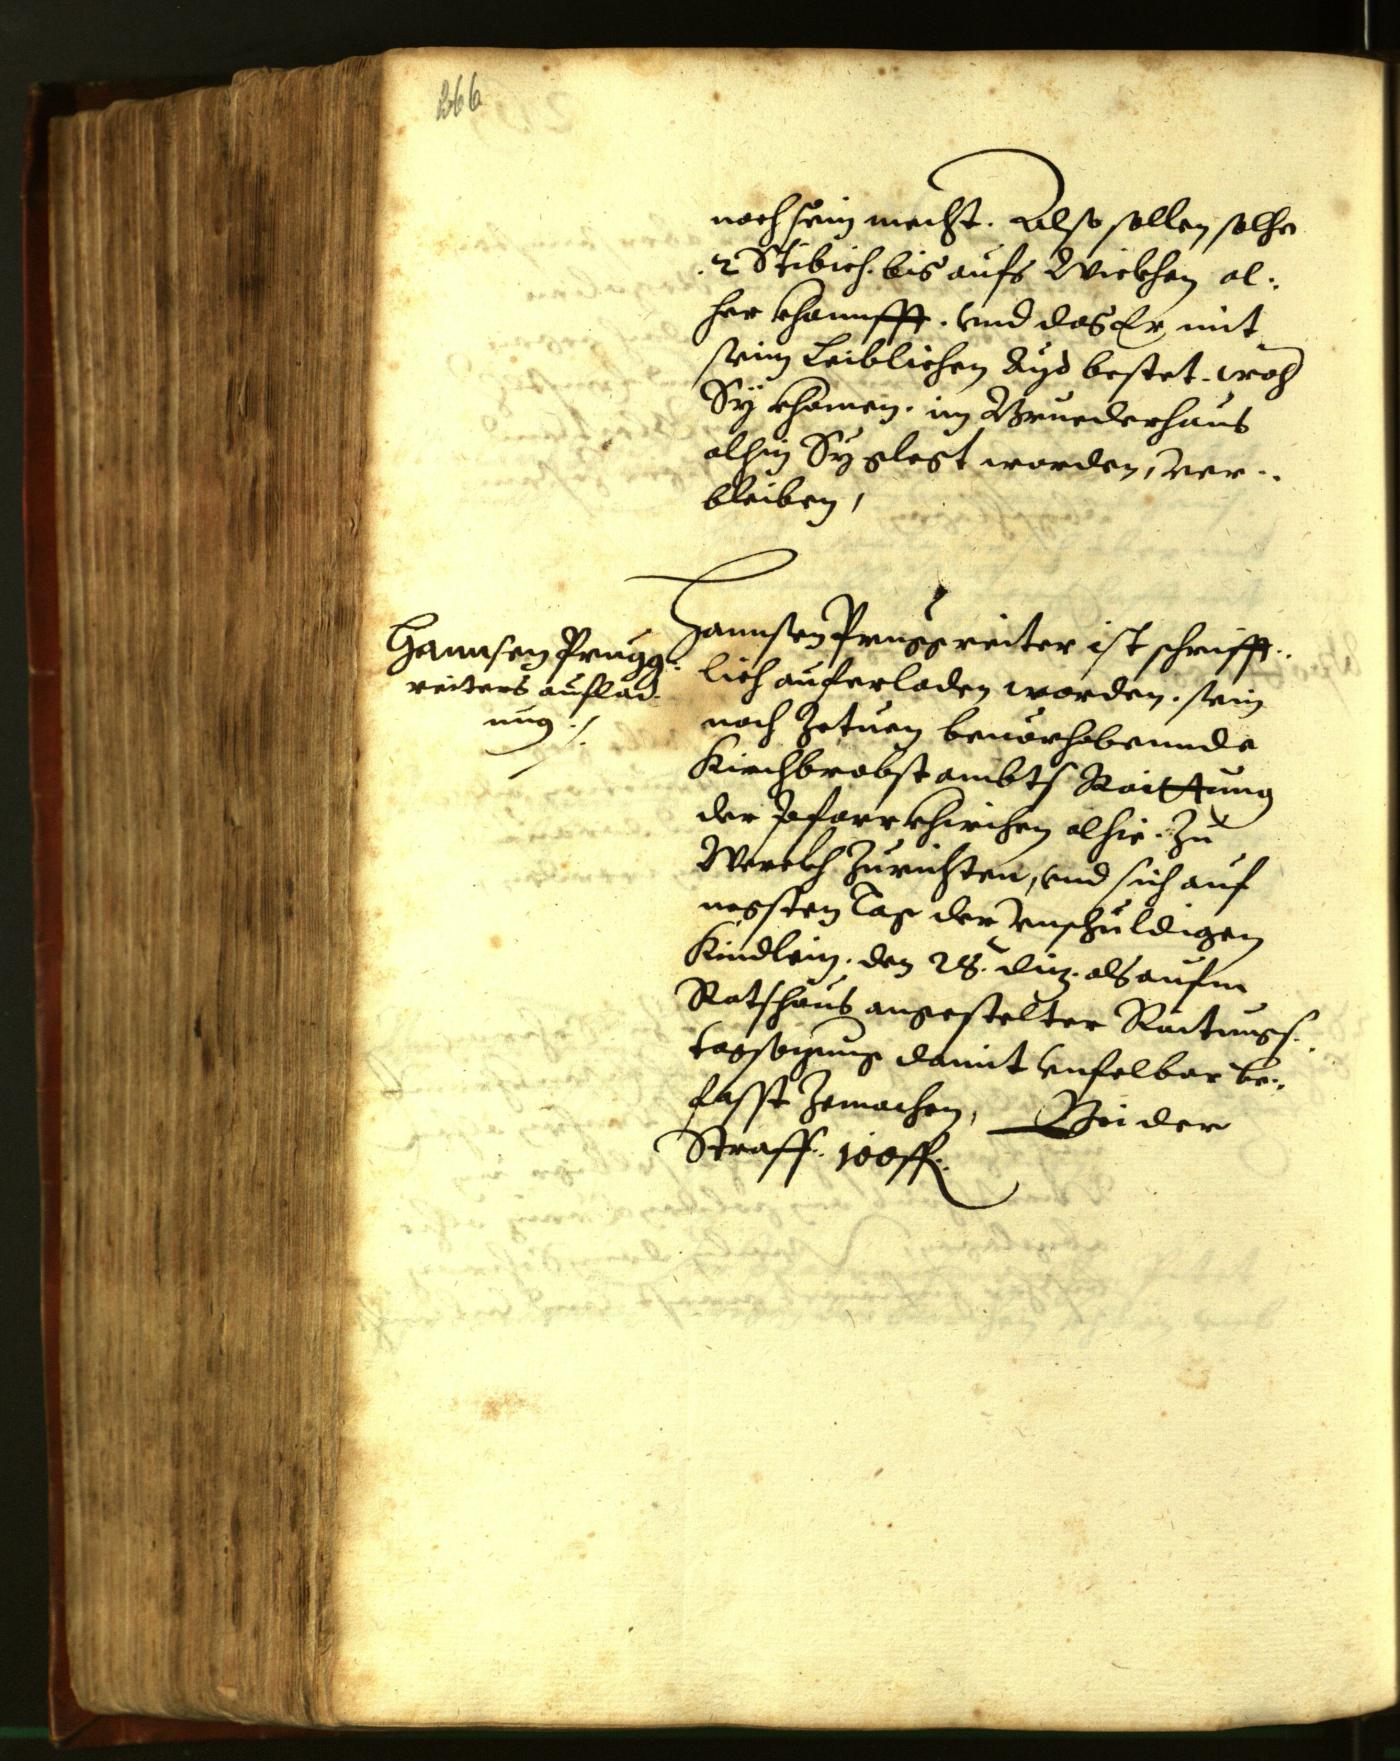 266
noch sein mecht. Also sollen solhe
.2 Stibich. bis aufs Widerkhen al:
her khaufft. vnd das Er mit
seim Leiblichen Ayd bestet. woh
Sÿ khomen. im Bruederhaus
alhie Sÿ glegt worden, ver:
bleiben,
Hannsen Prugg:
reiters auflad
nug ./.
Hannsen Pruggreiter ist schrifft:
lich auferladen worden. sein
noch Zetuen beuorhabennde
Kirchbrobst ambts Raittung
der Pfarrkhirchen alhie. Zu
Werckh Zurichten, vnd sich auf
negsten Tag der vnschuldigen
Kindlein. den 28. diz. als aufm
Ratshaus angestelter Raitungs:
tagsazung damit vnfelbar be:
fasst Zemachen, Bei der
Straff. 100 fl.